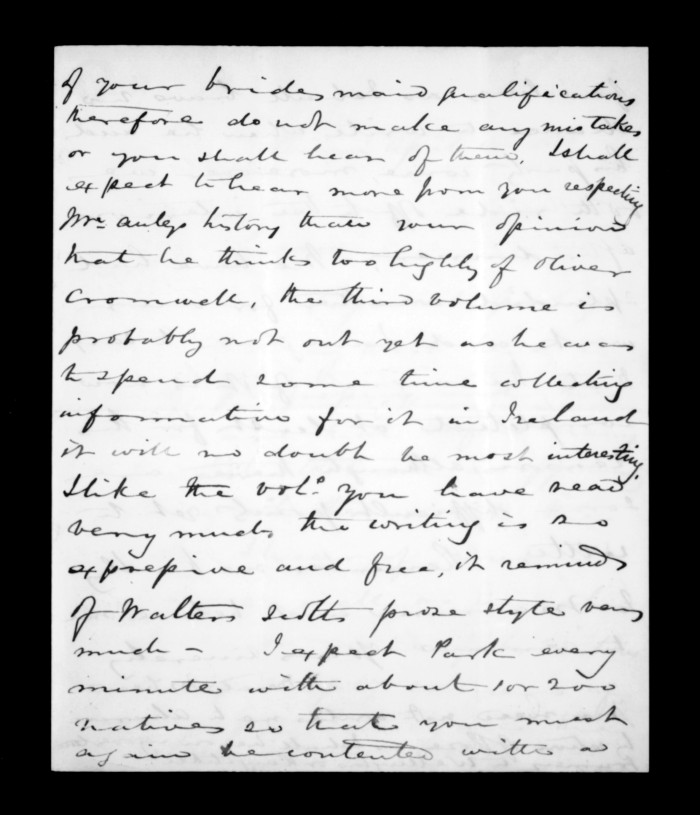 of your brides maid qualifications
therefore do not make any mistakes
or you shall hear of them, I shall
expect to hear more from you respecting
Mcaulys history than your opinion
that he thinks too highly of Oliver
Cromwell, the third volume is
probably not out yet as he was
to spend some time collecting
information for it in Ireland
it will no doubt be most interesting.
I like the vols you have read
very much the writing is so
exprepive and free, it reminds
of Walters Scotts prose style very
much - I expect Park every
minute with about 1 or 200
natives so that you must
again be contented with a